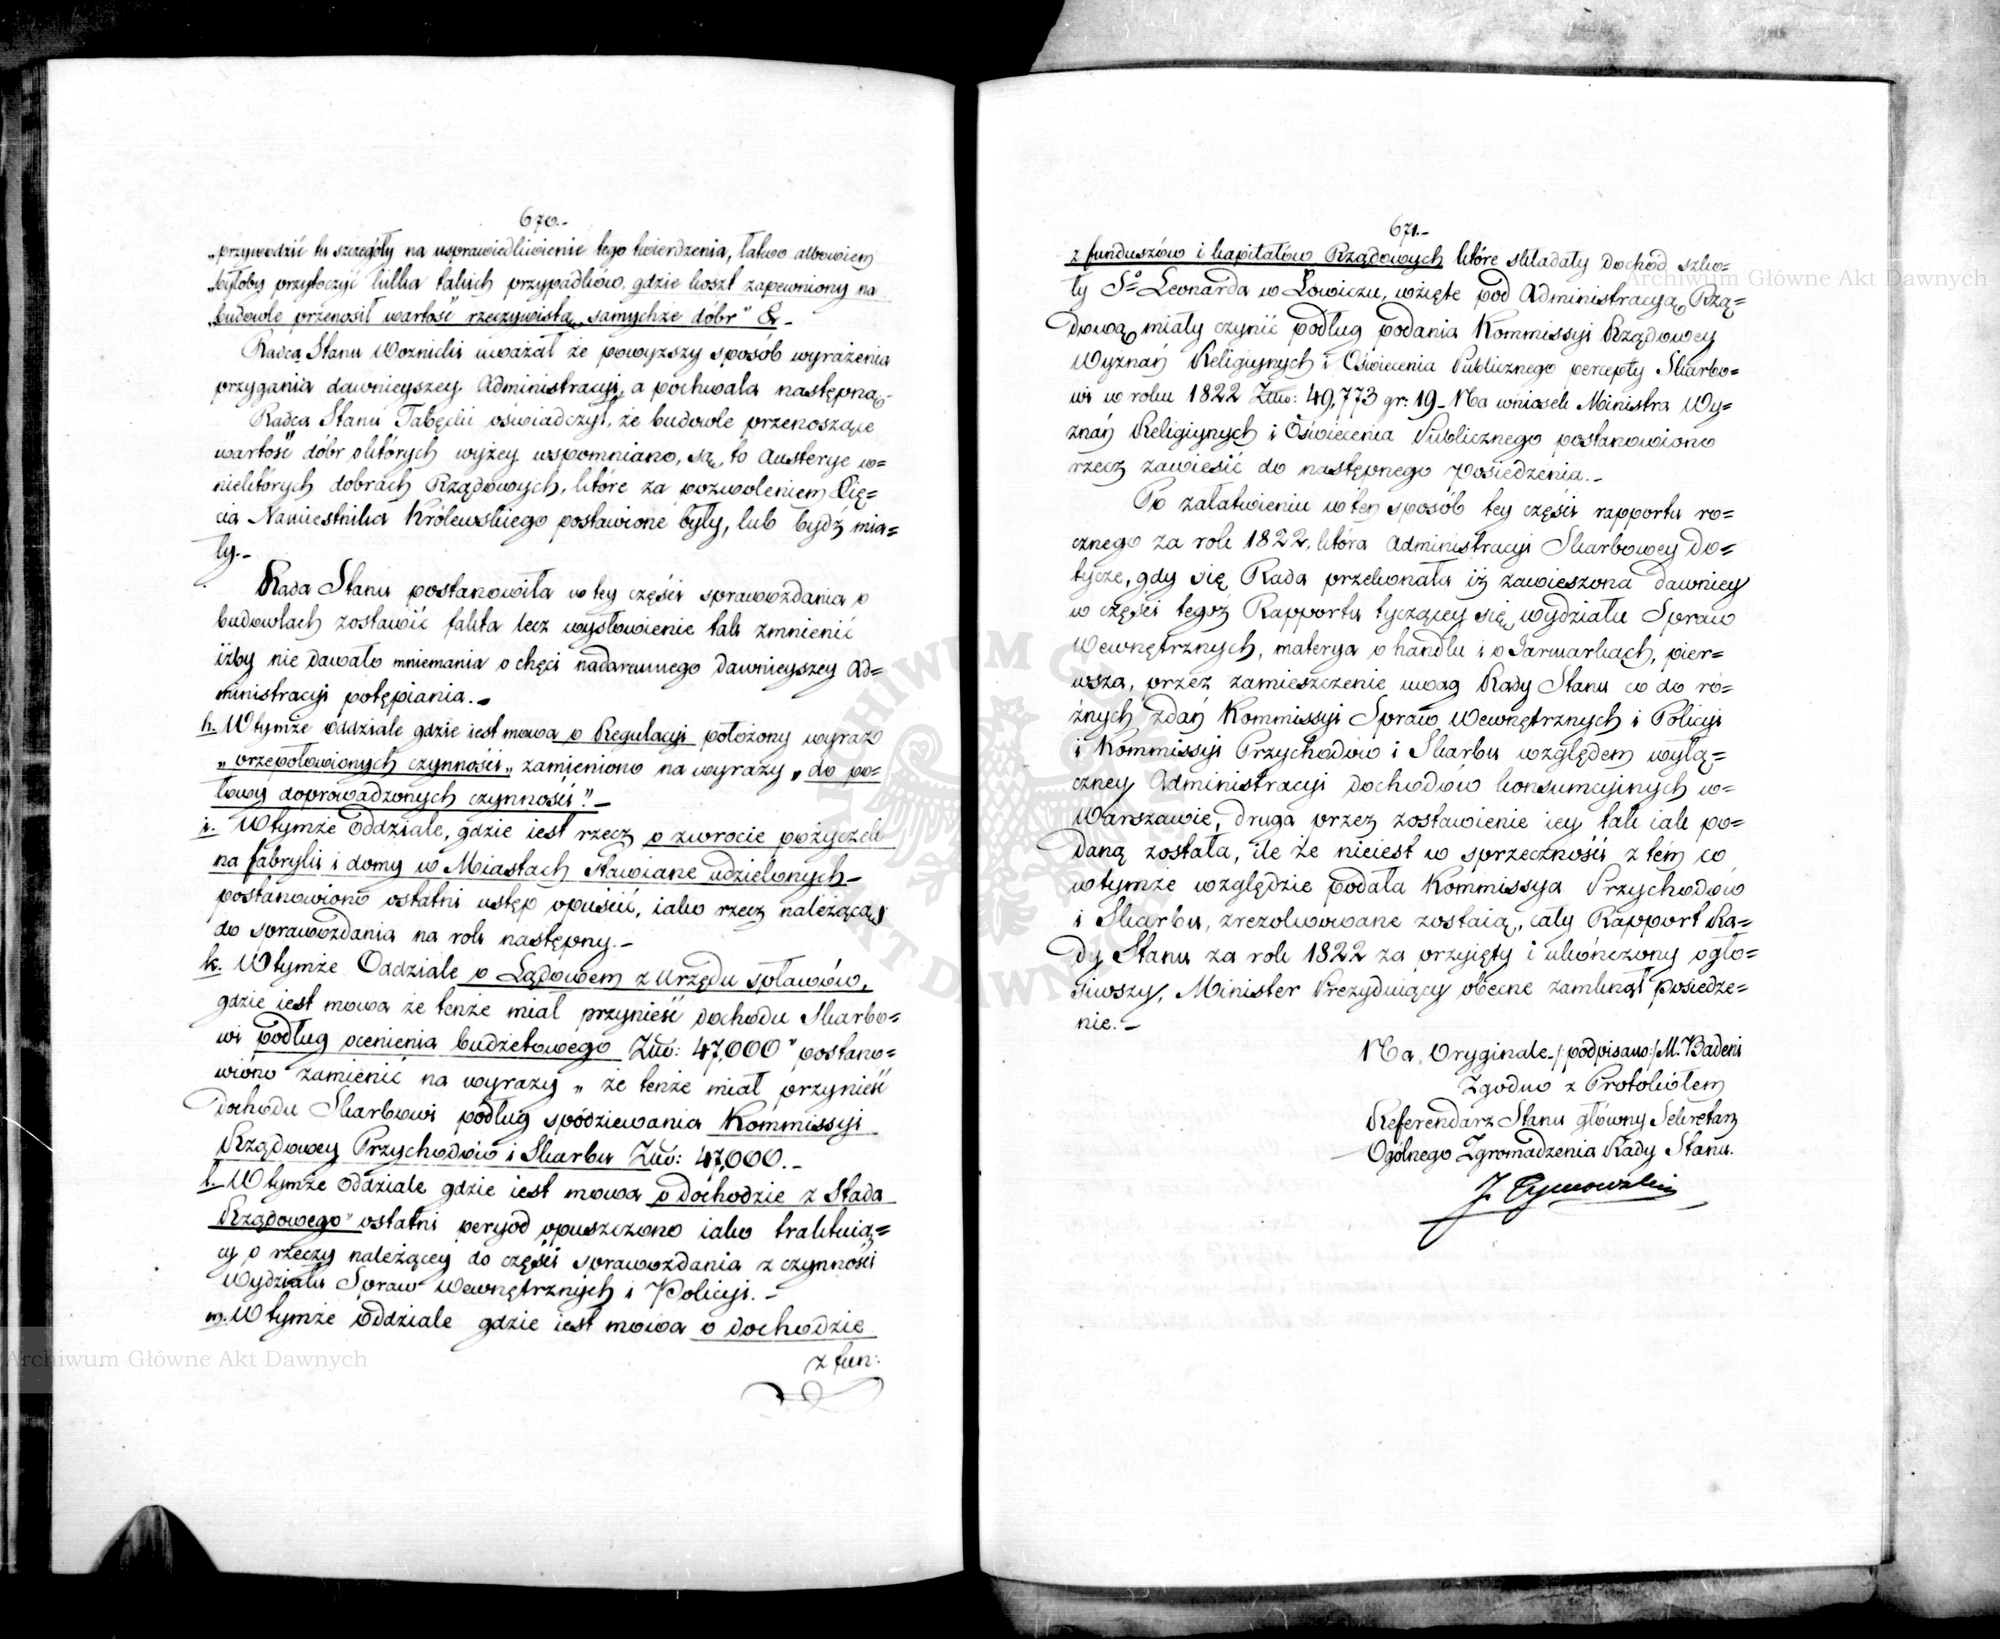 670.-
„przywodzić tu szczegóły na usprawiedliwienie tego twierdzenia, łatwo albowiem
„byłoby przytoczyć kilka takich przypadków, gdzie koszt zapewniony na
„budowle przenosił wartość rzeczywistą samychże dóbr" &-
Radca Stanu Woznicki uważał że powyższy sposób wyrażenia
przygania dawnieyszey Administracyi, a pochwala następną.-
Radca Stanu Tabęcki oświadczył, że budowle przenoszące
wartość dóbr o których wyżey wspomniano, są to Austerye w=
niektórych dobrach Rządowych, które za pozwoleniem Xię=
cia Namiestnika Królewskiego postawione były, lub bydź mia=
ły.-
Rada Stanu postanowiła w tey części sprawozdania o
budowlach zostawić fakta lecz wysłowienie tak zmnienić
iżby nie dawało mniemania o chęci nadaremnego dawnieyszey Ad=
ministracyi potępiania.-
h. W tymże oddziale gdzie iest mowa o Regulacyi położony wyraz
„przepołowionych czynności„ zamieniono na wyrazy „do po=
łowy doprowadzonych czynności".-
i. W tymże Oddziale, gdzie iest rzecz o zwrocie pożyczek
na fabryki i domy w Miastach stawiane udzielonych-
postanowiono ostatni ustęp opuścić, iako rzecz należącą
do sprawozdania na rok następny.-
k. W tymże Oddziale o Lądowem z Urzędu spławów,
gdzie iest mowa że tenże miał przynieść dochodu Skarbo=
wi podług ocenienia budżetowego Złłp: 47,000" postano=
wiono zamienić na wyrazy „ że tenże miał przynieść
dochodu Skarbowi podług spodziewania Kommissyi
Rządowey Przychodów i Skarbu Złłp: 47,000.-
l. W tymże oddziale gdzie iest mowa o dochodzie z Stada
Rządowego" ostatni peryod opuszczono iako traktuią=
cy o rzeczy należącey do części sprawozdania z czynności
Wydziału Spraw Wewnętrznych i Policyi.-
m. W tymże oddziale gdzie iest mowa o dochodzie
z fun:
671.-
z funduszów i kapitałów Rządowych które składały dochód szko=
ły Sgo Leonarda w Łowiczu, wzięte pod Administracyą Rzą=
dową miały czynić podług podania Kommissyi Rządowey
Wyznań Religiynych i Oświecenia Publicznego percepty Skarbo=
wi w roku 1822 Złłp: 49,773 gr: 19- Na wniosek Ministra Wy=
znań Religiynych i Oświecenia Publicznego postanowiono
rzecz zawiesić do następnego Posiedzenia.-
Po załatwieniu w ten sposób tey części rapportu ro=
cznego za rok 1822, która Administracyi Skarbowey do=
tycze, gdy się Rada przekonała iż zawieszona dawniey
w części tegoż Rapportu tyczącey się wydziału Spraw
Wewnętrznych, materya o handlu i o Jarmarkach, pier=
wsza, przez zamieszczenie uwag Rady Stanu co do ró=
żnych zdań Kommissyi Spraw Wewnętrznych i Policyi
i Kommissyi Przychodów i Skarbu względem wyłą=
czney Administracyi dochodów konsumcyinych w=
Warszawie, druga przez zostawienie iey tak iak po=
daną została, ile że nieiest w sprzeczności z tém co
w tymże względzie podała Kommissya Przychodów
i Skarbu, zrezolwowane zostaią, cały Rapport Ra=
dy Stanu za rok 1822 za przyięty i ukończony ogło=
siwszy, Minister Prezyduiący obecne zamknął posiedze=
nie.-
Na Oryginale./ podpisano:/ M. Badeni
Zgodno z Protokółem
Referendarz Stanu główny Sekretarz
Ogólnego Zgromadzenia Rady Stanu.
J. Tymowski
Archiwum Główne Akt Dawnych
Archiwum Główne Akt Dawnych
ARCHIWUM GŁÓWNE AKT DAWNYCH